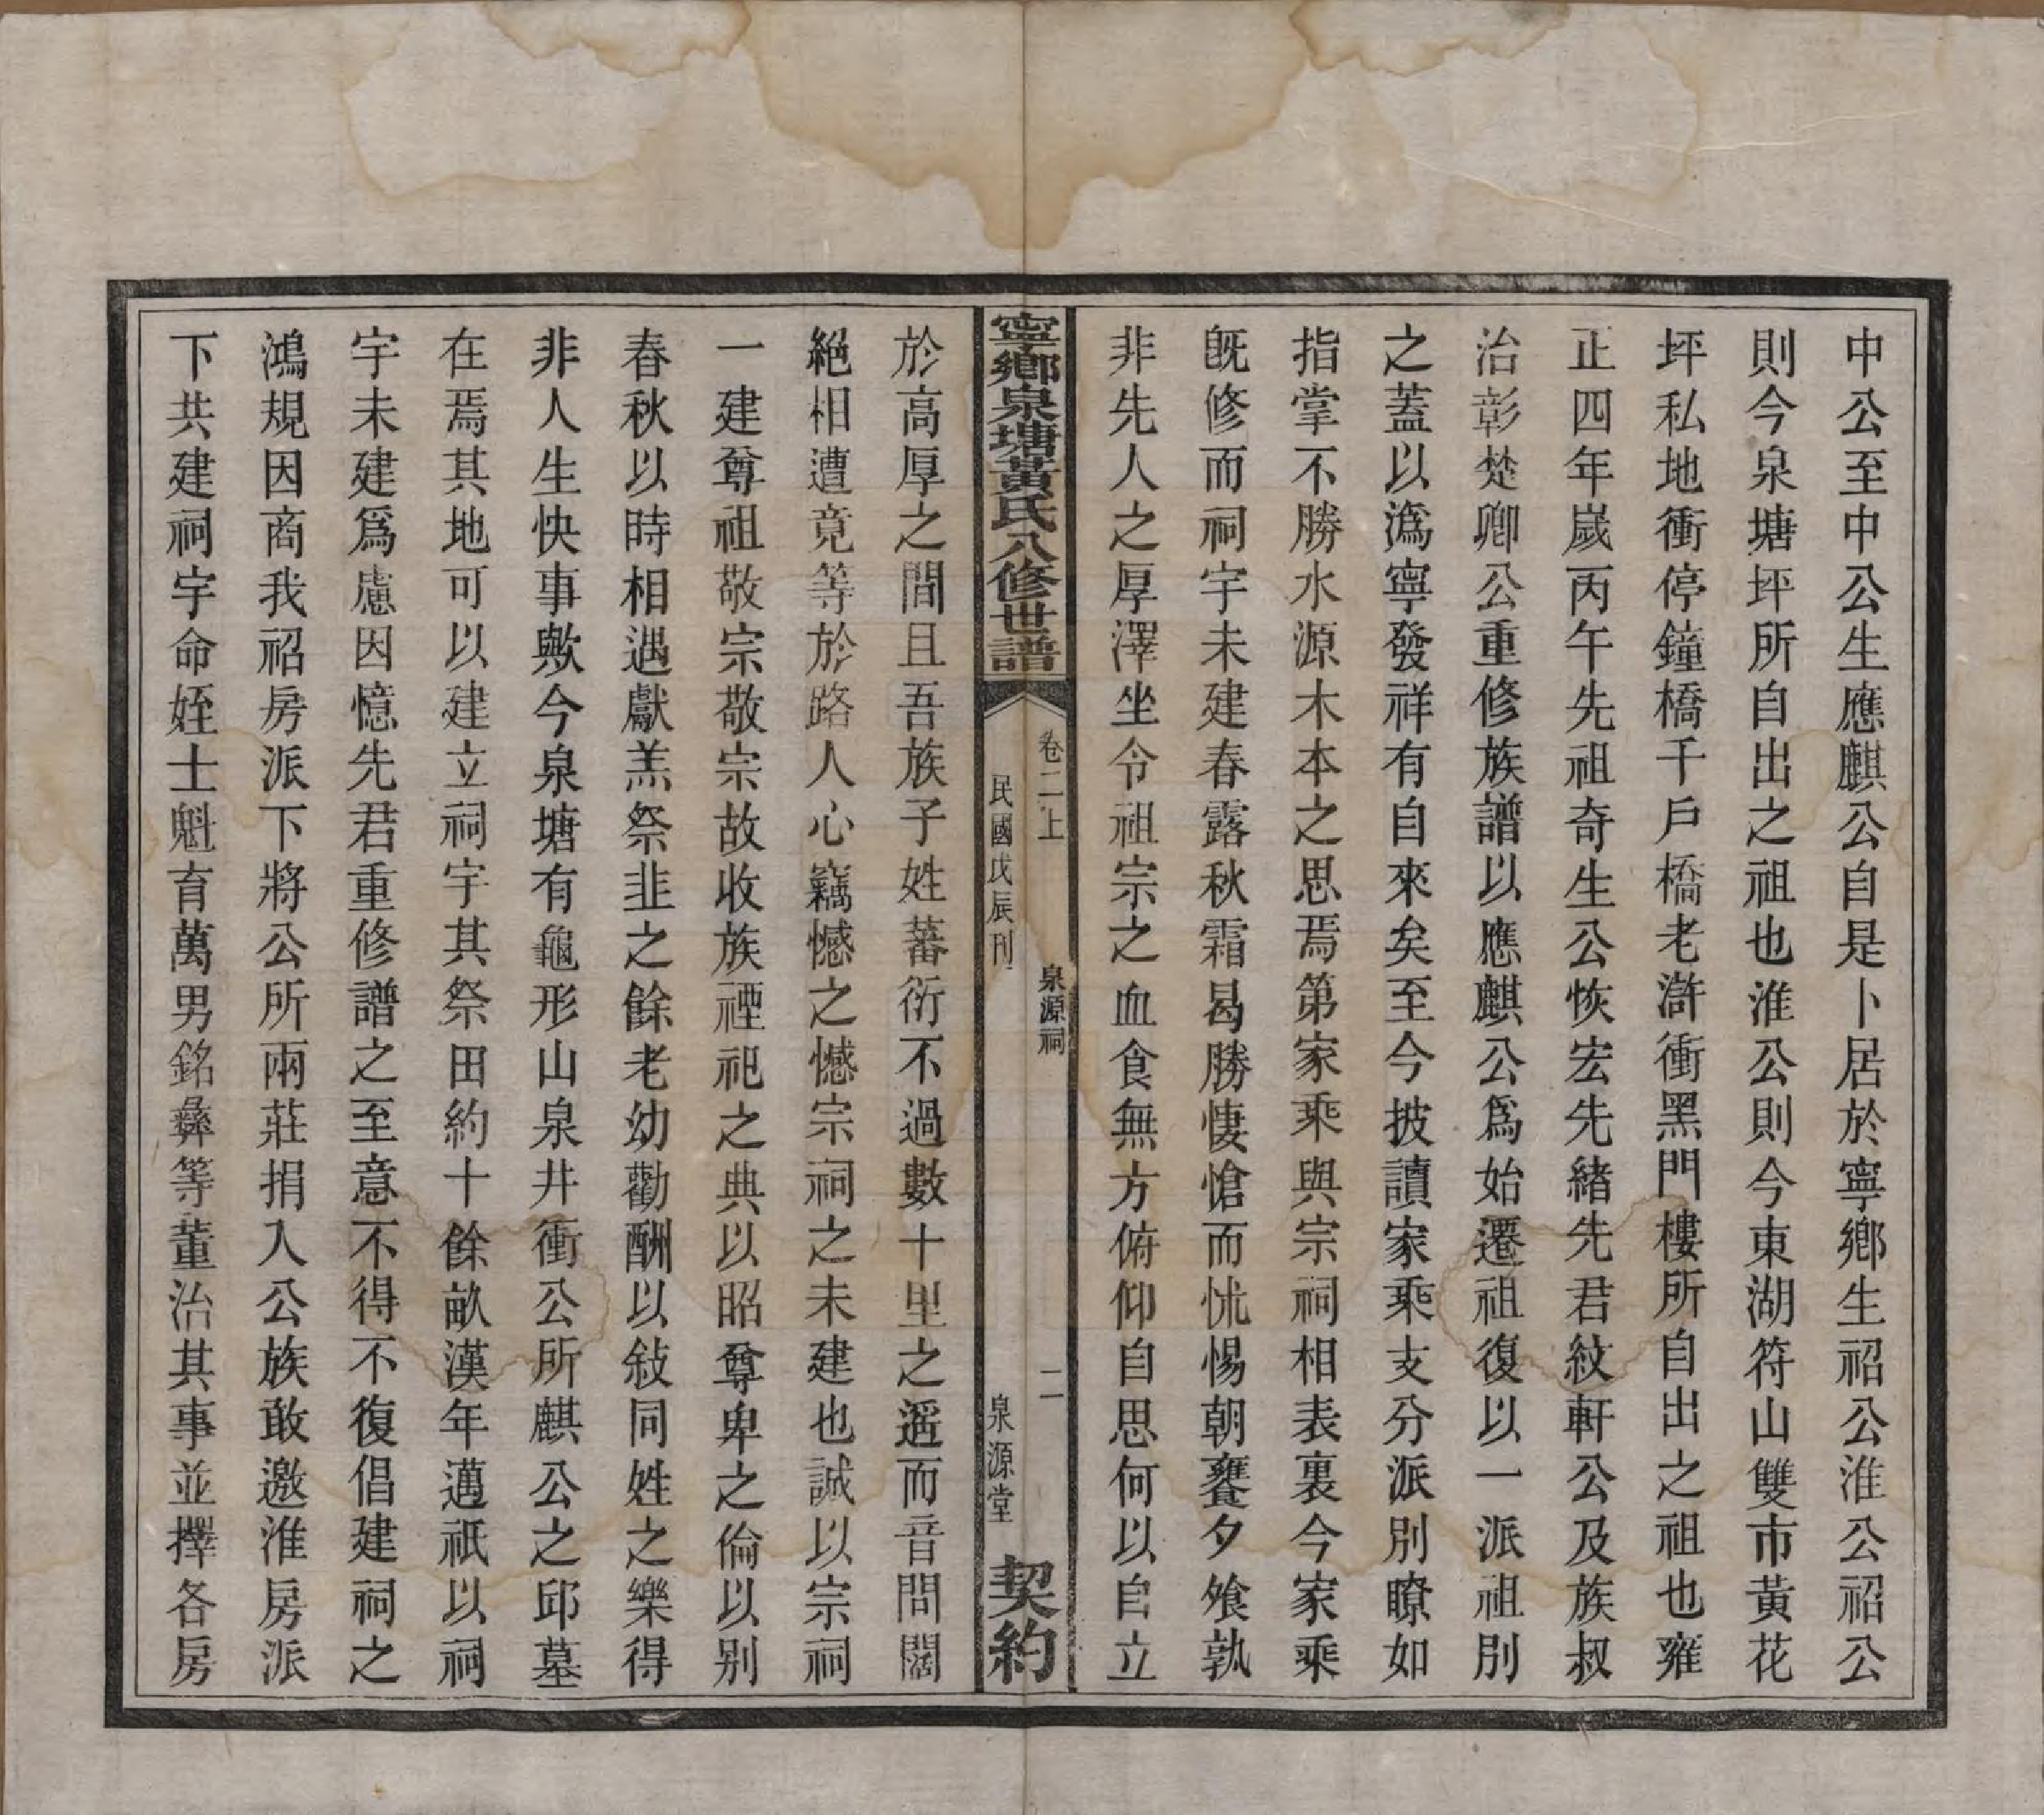 中公至中公生應麒公自是卜居於寧鄉生祒公淮公祒公
則今泉塘坪所自出之祖也淮公則今東湖符山雙市黃花
坪私地衝停鐘橋千戶橋老滸衝黑門樓所自出之祖也雍
正四年歲丙午先祖奇生公恢宏先緒先君紋軒公及族叔
治彰楚卿公重修族譜以應麒公爲始遷祖復以一派祖別
之蓋以潙寧發祥有自來矣至今披讀家乘支分派別瞭如
指掌不勝水源木本之思焉第家乘與宗祠相表裏今家乘
旣修而祠宇未建春露秋霜曷勝悽愴而怵惕朝饔夕飧孰
非先人之厚澤坐令祖宗之血食無方俯仰自思何以自立
寧鄉泉塘黃氏八修世譜
卷二上
泉源祠
二
民國戊辰刊
泉源堂
契約
於高厚之間且吾族子姓蕃衍不過數十里之遥而音問闊
絕相遭竟等於路人心竊憾之憾宗祠之未建也誠以宗祠
一建尊祖敬宗敬宗故收族禋祀之典以昭尊卑之倫以別
春秋以時相遇獻羔祭韭之餘老幼勸酬以敍同姓之樂得
非人生快事歟今泉塘有龜形山泉井衝公所麒公之邱墓
在焉其地可以建立祠宇其祭田約十餘畝漢年邁祇以祠
宇未建爲慮因憶先君重修譜之至意不得不復倡建祠之
鴻規因商我祒房派下將公所兩莊捐入公族敢邀淮房派
下共建祠宇命姪士魁育萬男銘彝等董治其事並擇各房